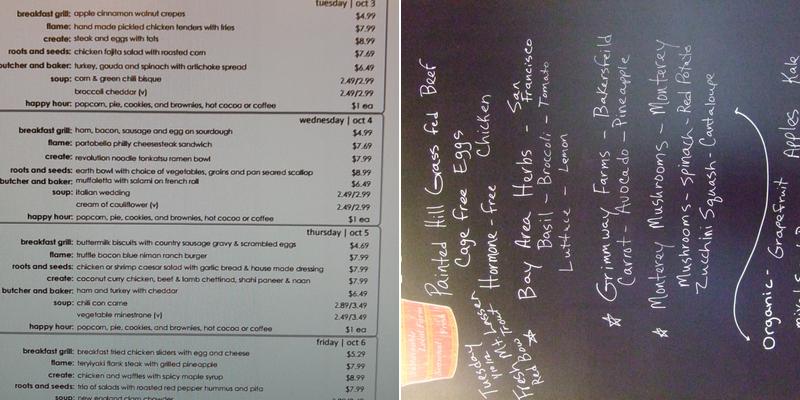 tuesday | oct 3
breakfast grill: apple cinnamon walnut crepes $4.99
flame: hand made pickled chicken tenders with fries $7.99
create: steak and eggs with tots $8.99
roots and seeds: chicken fajita salad with roasted corn $7.69
butcher and baker: turkey, gouda and spinach with artichoke spread $6.49
soup: corn & green chili bisque 2.49/2.99
broccoli cheddar (v) 2.49/2.99
happy hour: popcorn, pie, cookies, and brownies, hot cocoa or coffee $1 ea
wednesday | oct 4
breakfast grill: ham, bacon, sausage and egg on sourdough $4.99
flame: portobello philly cheesesteak sandwich $7.69
create: revolution noodle tonkatsu ramen bowl $7.99
roots and seeds: earth bowl with choice of vegetables, grains and pan seared scallop $8.99
butcher and baker: muffaletta with salami on french roll $6.49
soup: italian wedding 2.49/2.99
cream of cauliflower (v) 2.49/2.99
happy hour: popcorn, pie, cookies, and brownies, hot cocoa or coffee $1 ea
thursday | oct 5
breakfast grill: buttermilk biscuits with country sausage gravy & scrambled eggs $4.69
flame: truffle bacon blue niman ranch burger $7.99
roots and seeds: chicken or shrimp caesar salad with garlic bread & house made dressing $7.99
create: coconut curry chicken, beef & lamb chettinad, shahi paneer & naan $7.99
butcher and baker: ham and turkey with cheddar $6.49
soup: chili con carne 2.89/3.49
vegetable minestrone (v) 2.49/3.49
happy hour: popcorn, pie, cookies, and brownies, hot cocoa or coffee $1 ea
friday | oct 6
breakfast grill: breakfast fried chicken sliders with egg and cheese $5.29
flame: teriyaki flank steak with grilled pineapple $7.99
create: chicken and waffles with spicy maple syrup $8.99
roots and seeds: trio of salads with roasted red pepper hummus and pita $7.99
soup: new england clam chowder
Painted Hill Grass Fed Beef
Cage Free Eggs
Hormone-Free Chicken
Bay Area Herbs - San Francisco
Basil - Broccoli - Tomato
Luttuce - Lemon
Grimmway Farms - Bakersfeild
Carrot - Avocado - Pineapple
Monterey Mushrooms - Monterey
Mushrooms - Spinach - Red Potato
Zucchini Squash - Cantaloupe
Organic - Grapefruit Apples Kale
Tuesday
Fresh Bow
Red